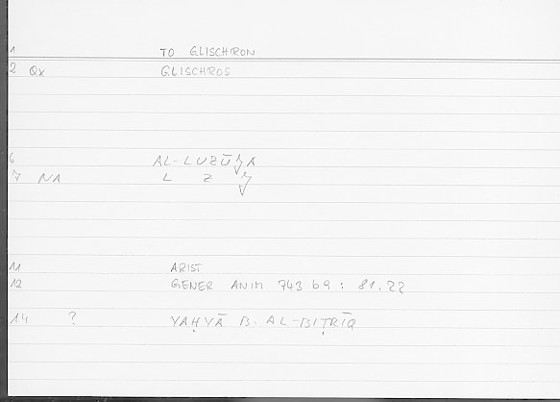 1 TO GLISCHRON
2 Qx GLISCHROS
6 AL-LUZŪǦA
7 NA L Z Ǧ
11 ARIST
12 GENER ANIM 743 b9 : 81.22
14 ? YAḤYĀ B. AL-BIṬRĪQ